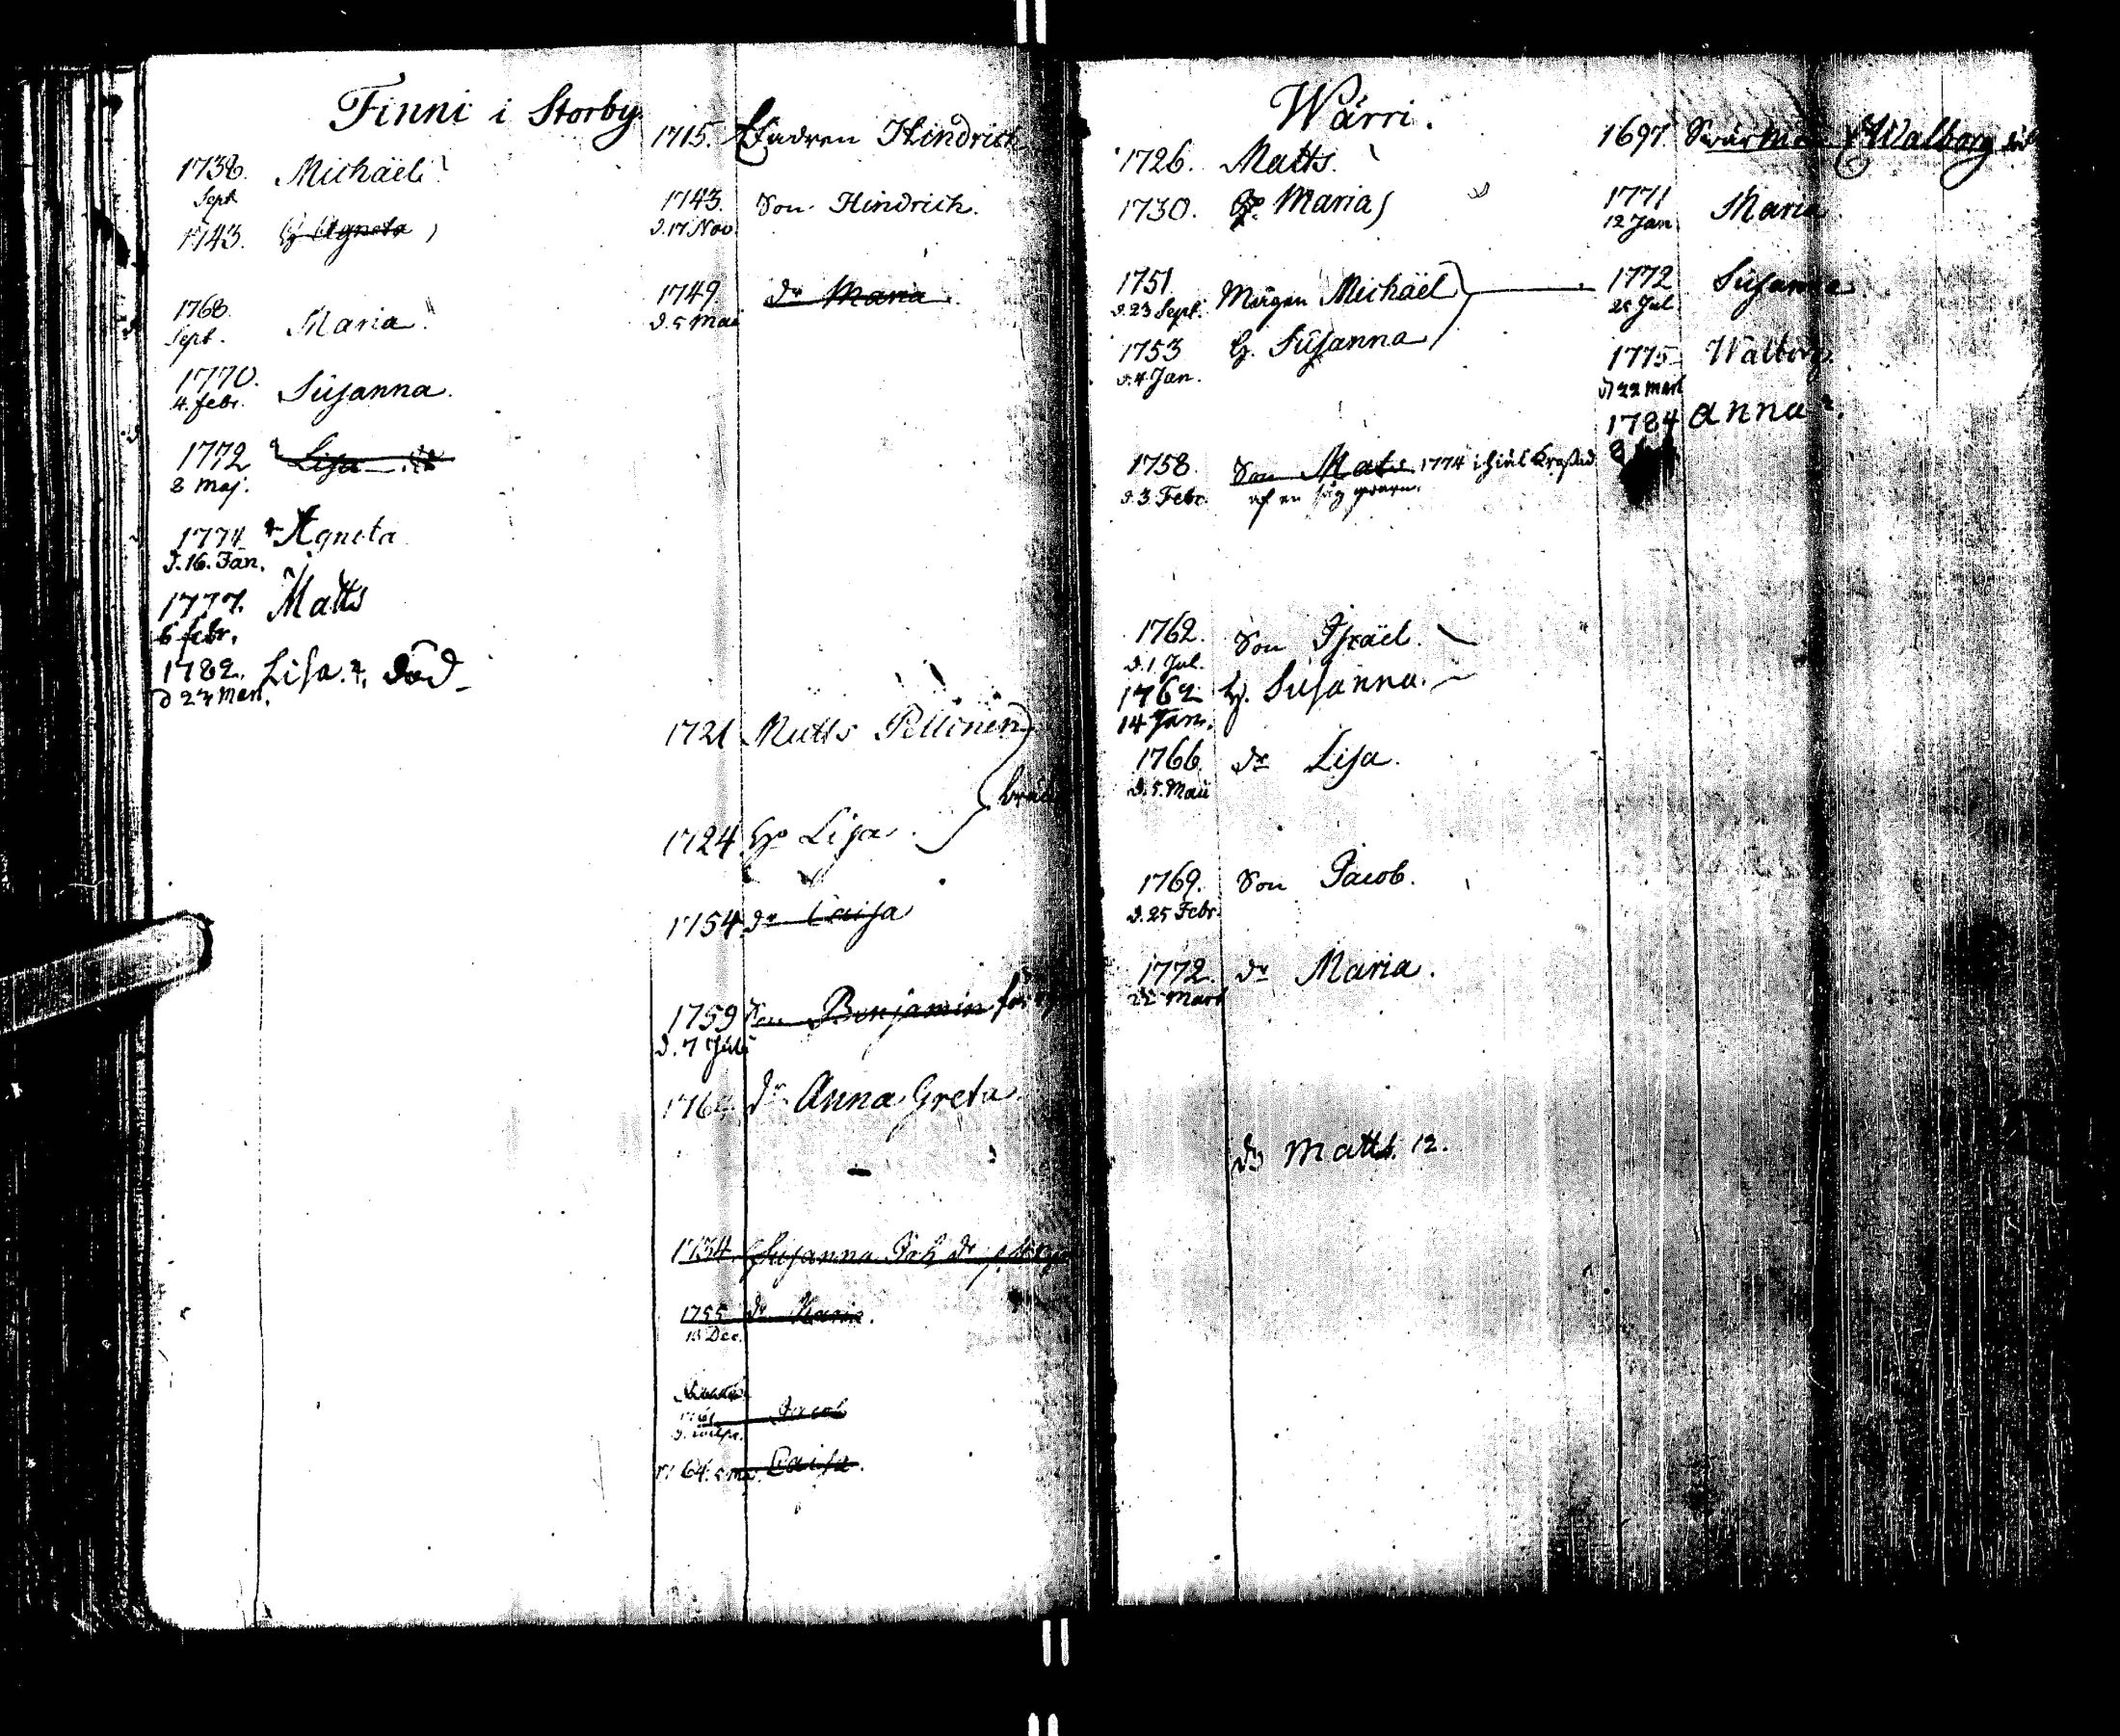 Finni i Storby
1738. Michäel
Sept
1743. H Agneta
1768. Maria
Sept.
1770. Susanna.
4. febr.
1772 Lisa
8 Maj.
1774 Agneta
d. 16. Jan.
1777. Matts
6 febr.
1782. Lisa. 4. död
d 27 Mart.
1715. Fadren Hindrich
1743. Son Hindrich.
d. 17 Nov
1749. dr Maria
d. 5 Maii
1721 Matts Pellonen
1724 H. Lisa
1754 dr Caisa
1759 Son Benjamin
d. 7 Julii
176 dr Anna Greta
1734 Susanna Joh. dr
1755 dr Maria.
13 Dec.
Jacob
1764. Caisa.
Wärri.
1726. Matts.
1730. H. Maria
1751. Mågen Michäel
d. 23 Sept.
1753 H. Susanna
d. 4 Jan.
1758. Son Mats 1774 ihiäl
d. 3 Febr. af en
1762. Son Israël.
d. 1 Jul.
1762 H. Susanna.
14 Jan.
1766. dr Lisa.
d. 5. Maii
1769. Son Jacob.
d. 25 Febr.
1772. dr Maria.
22 Mart
Matts. 12.
1697 Swärmod. Walborg död
1771 Maria
12 Jan
1772 Susanna
25 Jul.
1775 Walborg
d 22 Mart
1784 Anna